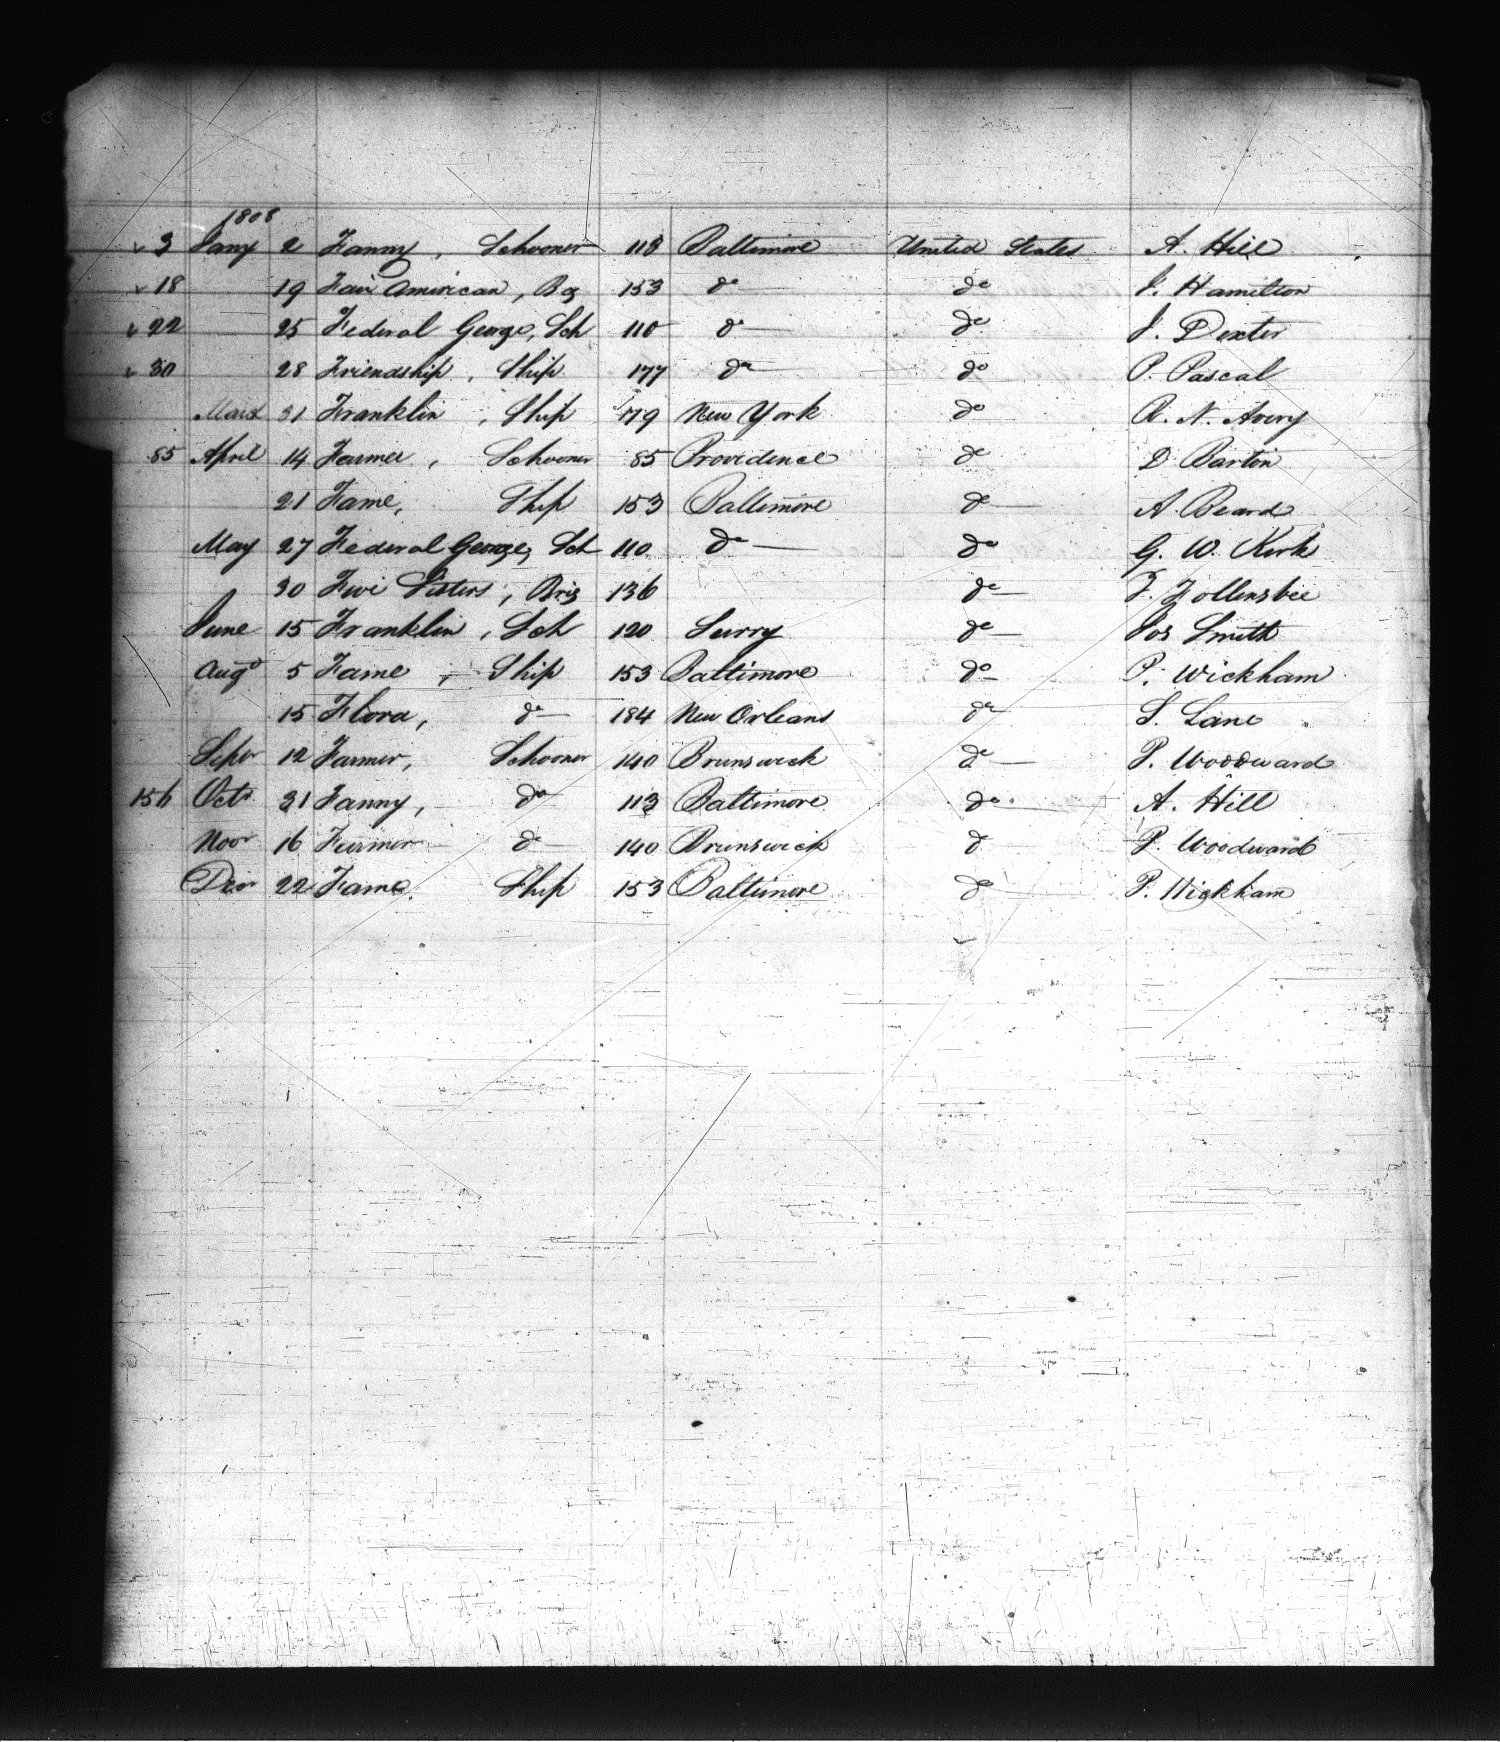 1808
3 Jany 2 Fanny, Schooner 113 Baltimore United States A. Hill
18 19 Fair American, Bg 153 do do J. Hamilton
22 25 Federal George, Sch 110 do do J. Dexter
30 28 Friendship, Ship 177 do do P. Pascal
March 31 Franklin, Ship 179 New York do R. N. Avery
85 April 14 Farmer, Schooner 85 Providence do D Barton
21 Fame, Ship 153 Baltimore do A. Beard
May 27 Federal George, Sch 110 do do G. W. Kirk
30 Five Sisters, Brig 136 do F. Follensbie
June 15 Franklin, Sch 120 Surry do Jos Smith
Augo 5 Fame, Ship 153 Baltimore do P. Wickham
15 Flora, do 184 New Orleans do S. Lane
Sepr 12 Farmer, Schooner 140 Brunswick do P. Woodward
156 Octr 31 Fanny, do 113 Baltimore do A. Hill
Novr 16 Farmer do 140 Brunswick do P. Woodward
Decr 22 Fame. Ship 153 Baltimore do P. Wickham